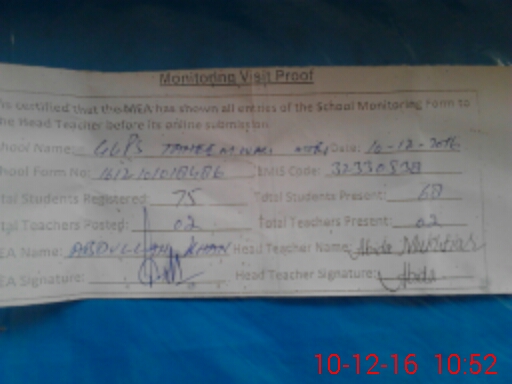 Monitoring Visit Proof
is certified that the MEA has shown all entries of the School Monitoring Form to
he Head Teacher before its online submission.
hool Name: GGPS Date: 10-12-2016
chool Form No: EMIS Code: 32330538
tal Students Registered: 75 Total Students Present: 68
tal Teachers Posted: 02 Total Teachers Present: 02
EA Name: ABDULLAH KHAN Head Teacher Name: Abda
EA Signature: Head Teacher Signature: Abda
10-12-16 10:52